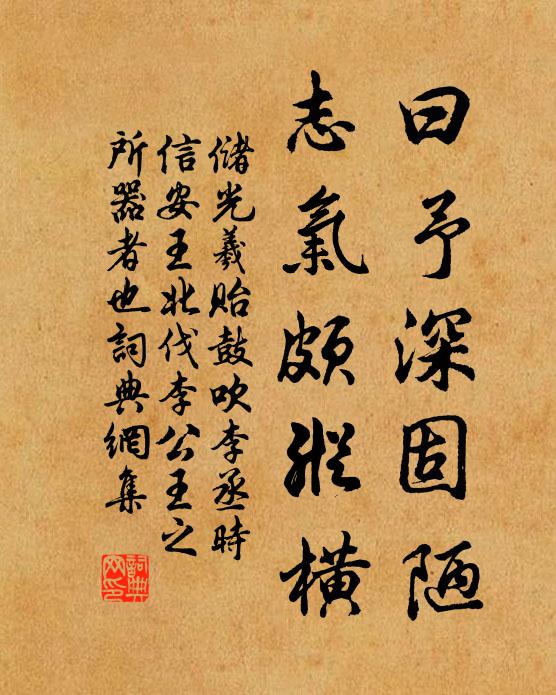 曰予深固陋
志氣頗縱橫
儲光羲貽鼓吹李丞時
信安王北伐李公王之
所器者也詞典網集
詞典
网印